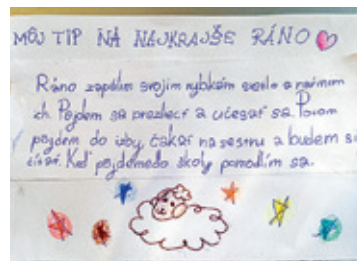 MÔJ TIP NA NAJKRAJŠE RÁNO
Ráno zapálim svojim rybkám svetlo a nakŕmim
ich. Pojdem sa prezliecť a učesať sa. Potom
pojdem do izby, čakať na sestru a budem si
čítať. Keď pojdeme do školy pomodlím sa.